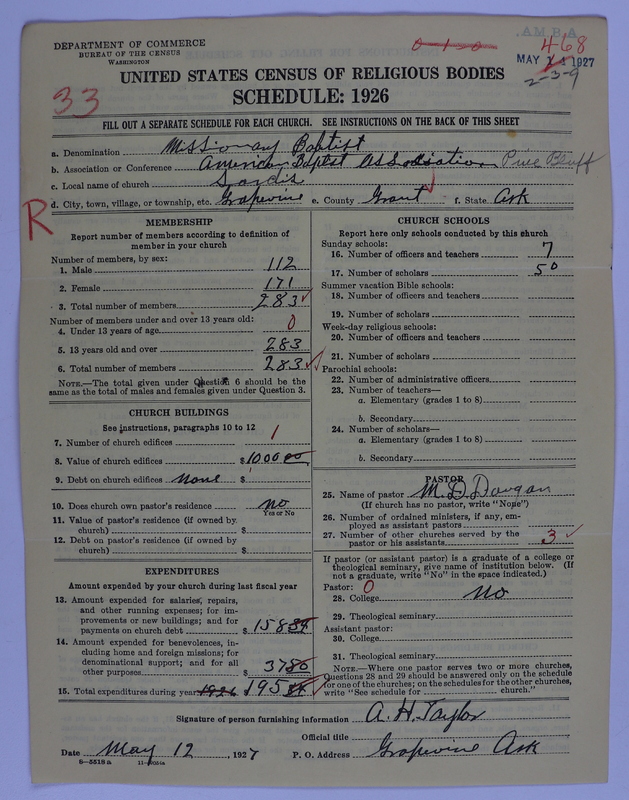 DEPARTMENT OF COMMERCE
BUREAU OF THE CENSUS
WASHINGTON
A.B.M.A.
0-1-0
468
MAY 1927
2-3-9
33
UNITED STATES CENSUS OF RELIGIOUS BODIES
SCHEDULE: 1926
FILL OUT A SEPARATE SCHEDULE FOR EACH CHURCH. SEE INSTRUCTIONS ON THE BACK OF THIS SHEET
a. Denomination Missionary Baptist
b. Association or Conference American Baptist Association Pine Bluff
c. Local name of church Sardis
d. City, town, village, or township, etc. Grapevine e. County Grant f. State Ark
R
MEMBERSHIP
Report number of members according to definition of
member in your church
Number of members, by sex:
1. Male 112
2. Female 171
3. Total number of members 283
Number of members under and over 13 years old:
4. Under 13 years of age 0
5. 13 years old and over 283
6. Total number of members 283
NOTE.—The total given under Question 6 should be the
same as the total of males and females given under Question 3.
CHURCH BUILDINGS
See instructions, paragraphs 10 to 12
7. Number of church edifices 1
8. Value of church edifices $1000 00
9. Debt on church edifices None $
10. Does church own pastor's residence no
Yes or No
11. Value of pastor's residence (if owned by
church) $
12. Debt on pastor's residence (if owned by
church) $
EXPENDITURES
Amount expended by your church during last fiscal year
13. Amount expended for salaries, repairs,
and other running expenses; for im-
provements or new buildings; and for
payments on church debt $158
14. Amount expended for benevolences, in-
cluding home and foreign missions; for
denominational support; and for all
other purposes $37 80
15. Total expenditures during year 1926 $195
CHURCH SCHOOLS
Report here only schools conducted by this church
Sunday schools:
16. Number of officers and teachers 7
17. Number of scholars 50
Summer vacation Bible schools:
18. Number of officers and teachers
19. Number of scholars
Week-day religious schools:
20. Number of officers and teachers
21. Number of scholars
Parochial schools:
22. Number of administrative officers
23. Number of teachers—
a. Elementary (grades 1 to 8)
b. Secondary
24. Number of scholars—
a. Elementary (grades 1 to 8)
b. Secondary
PASTOR
25. Name of pastor M. D. Dougan
(If church has no pastor, write "None")
26. Number of ordained ministers, if any, em-
ployed as assistant pastors
27. Number of other churches served by the
pastor or his assistants 3
If pastor (or assistant pastor) is a graduate of a college or
theological seminary, give name of institution below. (If
not a graduate, write "No" in the space indicated.)
Pastor: 0
28. College no
29. Theological seminary
Assistant pastor:
30. College
31. Theological seminary
NOTE.—Where one pastor serves two or more churches,
Questions 28 and 29 should be answered only on the schedule
for one of the churches; on the schedules for the other churches,
write "See schedule for church."
Signature of person furnishing information A. H. Taylor
Official title
Date May 12, 1927 P. O. Address Grapevine Ark
8-5518a